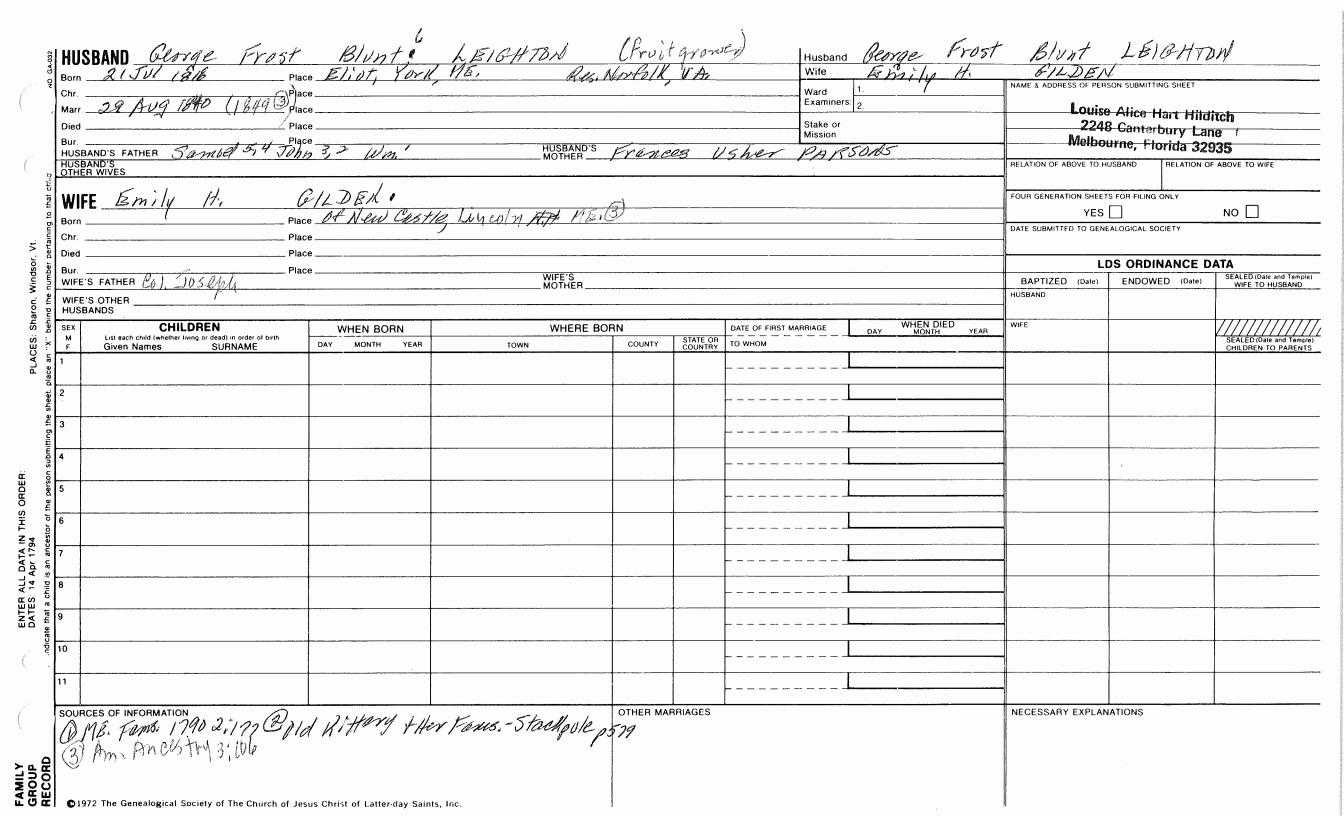 6
HUSBAND George Frost Blunt LEIGHTON (fruit grower)
Born 21 Jul 1818 Place Eliot, York, ME. Res. Norfolk, VA.
Chr. Place
Marr 29 Aug 1840 (1849 ③) Place
Died Place
Bur. Place
HUSBAND'S FATHER Samuel 5,4 John 3,2 Wm.1 HUSBAND'S MOTHER Frances Usher PARSONS
HUSBAND'S OTHER WIVES
WIFE Emily H. GILDEN.
Born Place of New Castle, Lincoln ME. ③
Chr. Place
Died Place
Bur. Place
WIFE'S FATHER Col. Joseph WIFE'S MOTHER
WIFE'S OTHER HUSBANDS
Husband George Frost Blunt LEIGHTON
Wife Emily H. GILDEN
Ward Examiners 1. 2.
Stake or Mission
NAME & ADDRESS OF PERSON SUBMITTING SHEET
Louise Alice Hart Hilditch
2248 Canterbury Lane
Melbourne, Florida 32935
RELATION OF ABOVE TO HUSBAND RELATION OF ABOVE TO WIFE
FOUR GENERATION SHEETS FOR FILING ONLY
YES NO
DATE SUBMITTED TO GENEALOGICAL SOCIETY
LDS ORDINANCE DATA
BAPTIZED (Date) ENDOWED (Date) SEALED (Date and Temple) WIFE TO HUSBAND
HUSBAND
WIFE
SEALED (Date and Temple) CHILDREN TO PARENTS
SEX M F
CHILDREN
List each child (whether living or dead) in order of birth
Given Names SURNAME
WHEN BORN
DAY MONTH YEAR
WHERE BORN
TOWN COUNTY STATE OR COUNTRY
DATE OF FIRST MARRIAGE
TO WHOM
WHEN DIED
DAY MONTH YEAR
1
2
3
4
5
6
7
8
9
10
11
SOURCES OF INFORMATION
① ME. Fams. 1790 2:177 ② Old Kittery & Her Fams.-Stackpole p579
③ Am. Ancestry 3:106
OTHER MARRIAGES
NECESSARY EXPLANATIONS
©1972 The Genealogical Society of The Church of Jesus Christ of Latter-day Saints, Inc.
FAMILY GROUP RECORD
ENTER ALL DATA IN THIS ORDER:
DATES 14 Apr 1794
PLACES: Sharon, Windsor, Vt.
indicate that a child is an ancestor of the person submitting the sheet, place an "X" behind the number pertaining to that child
NO GA-032